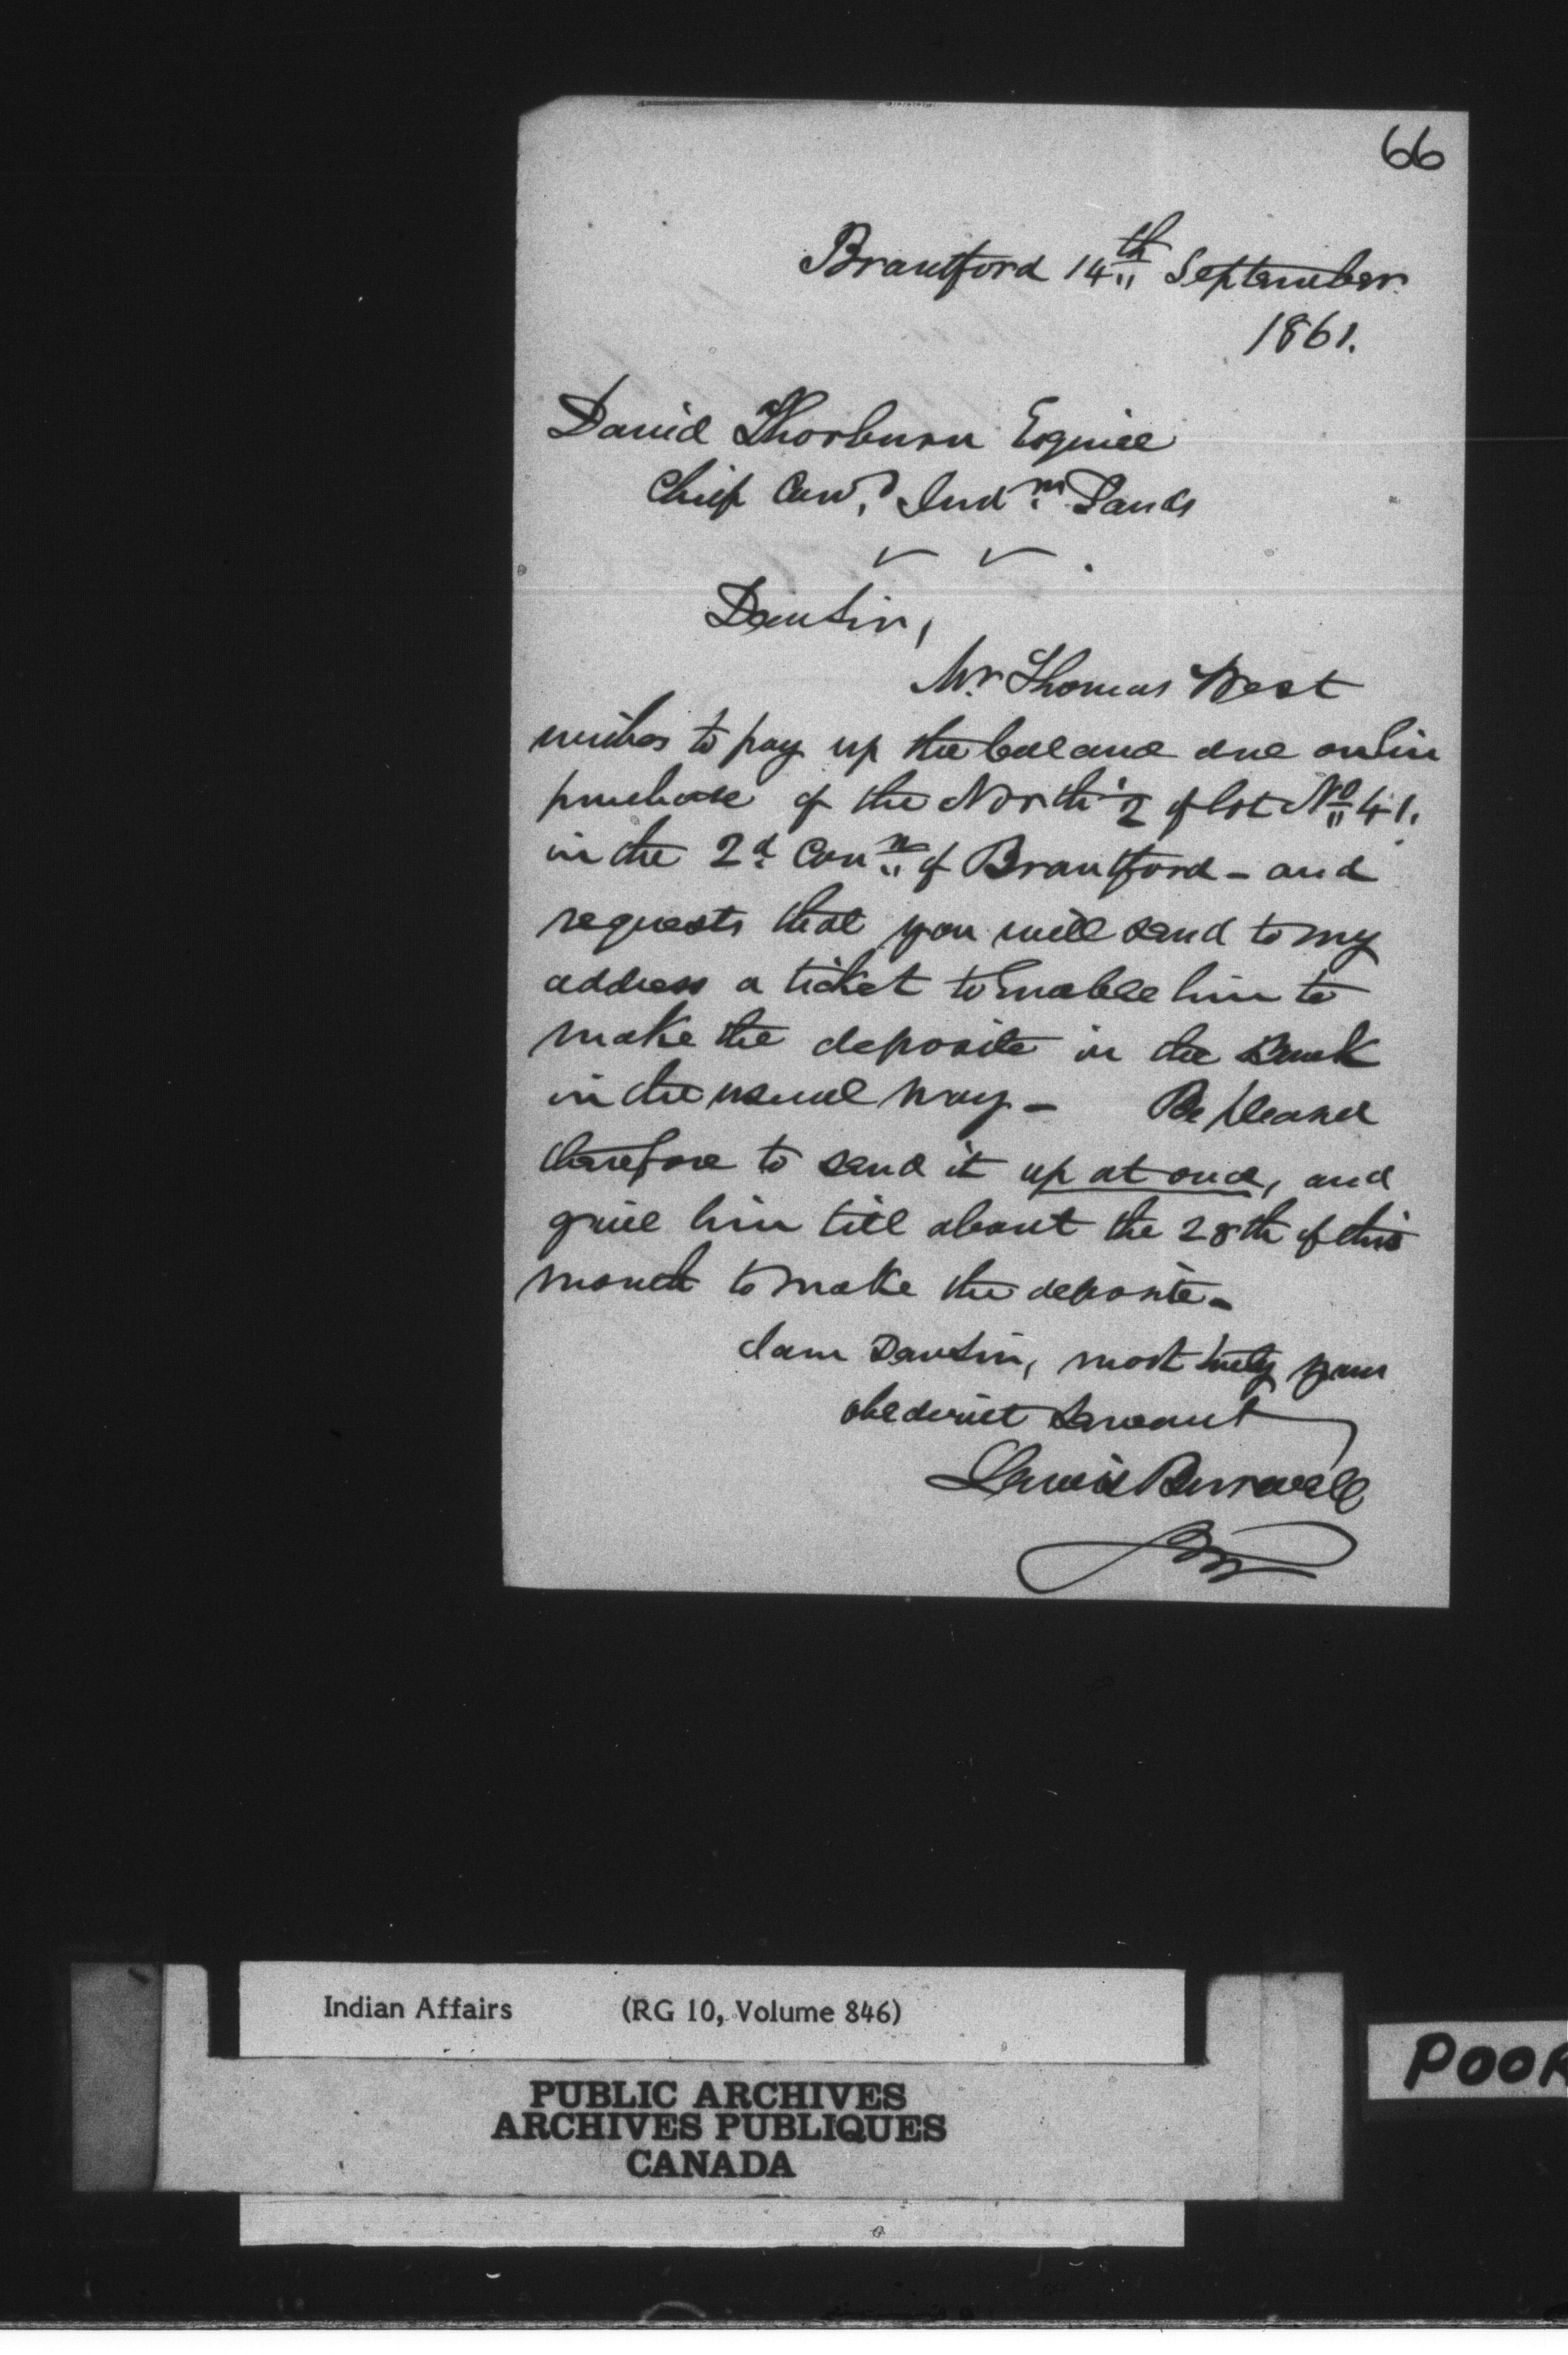 66
Brantford 14th September
1861.
David Thorburn Esquire
Chief Com.r Ind.n Lands
Dear Sir,
Mr. Thomas West
wishes to pay up the balance due on his
purchase of the North ½ of lot No 41.
in the 2d Con.n of Brantford - and
requests that you will send to my
address a ticket to enable him to
make the deposite in the Bank
in the usual way - Be pleased
therefore to send it up at once, and
give him till about the 28th of this
month to make the deposite -
I am Dear Sir, most truly your
obedient Servant
Lewis Burwell
Indian Affairs (RG 10, Volume 846)
PUBLIC ARCHIVES
ARCHIVES PUBLIQUES
CANADA
POOR